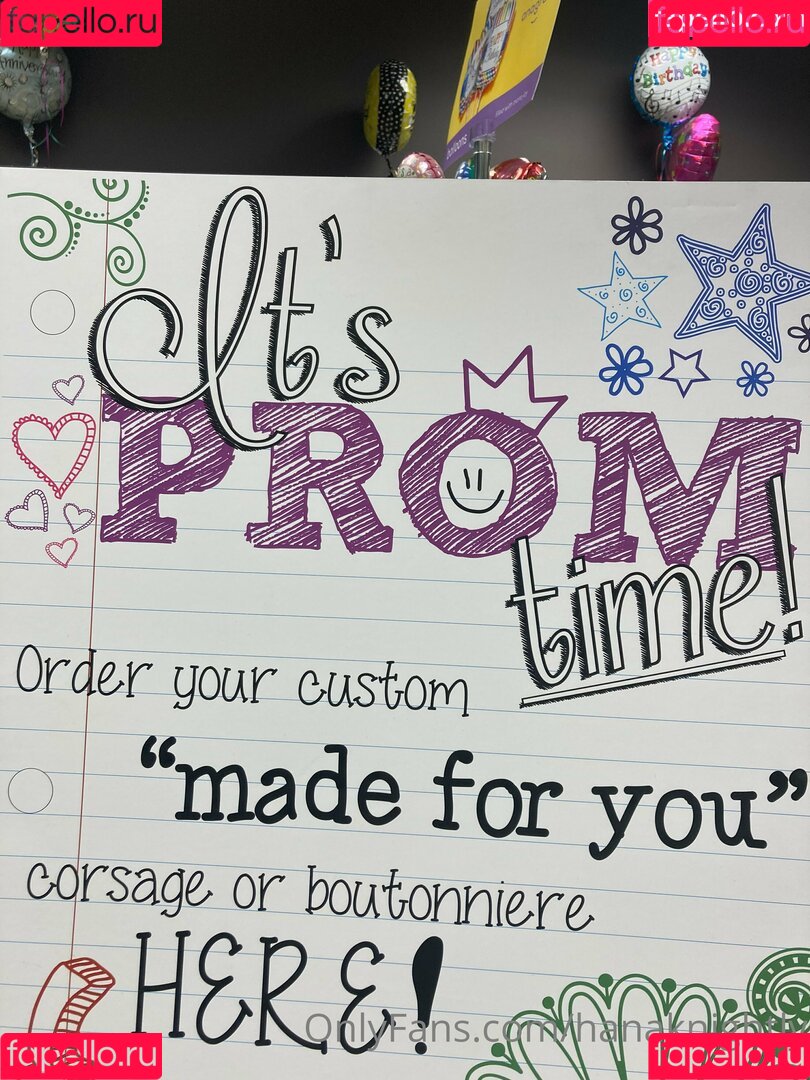 fapello.ru fapello.ru
Happy
Birthday
It's
PROM
time!
Order your custom
“made for you”
corsage or boutonniere
HERE!
fapello.ru fapello.ru